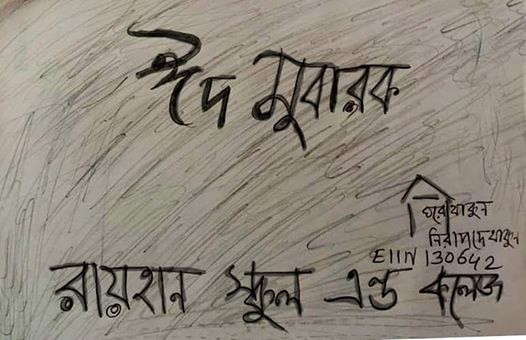 ঈদ মুবারক
ঘরে থাকুন
নিরাপদে থাকুন
EIIN 130642
রায়হান স্কুল এন্ড কলেজ